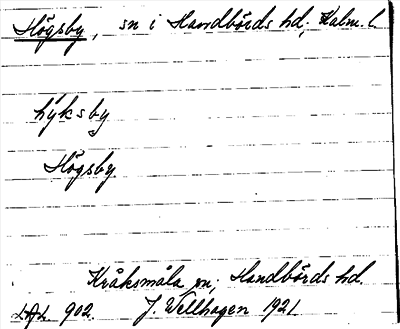 Högsby, sn i Handbörds hd, Kalm. l.
hýksby
Högsby
Kråksmåla sn, Handbörds hd.
LAL 902. J. Wellhagen 1921.